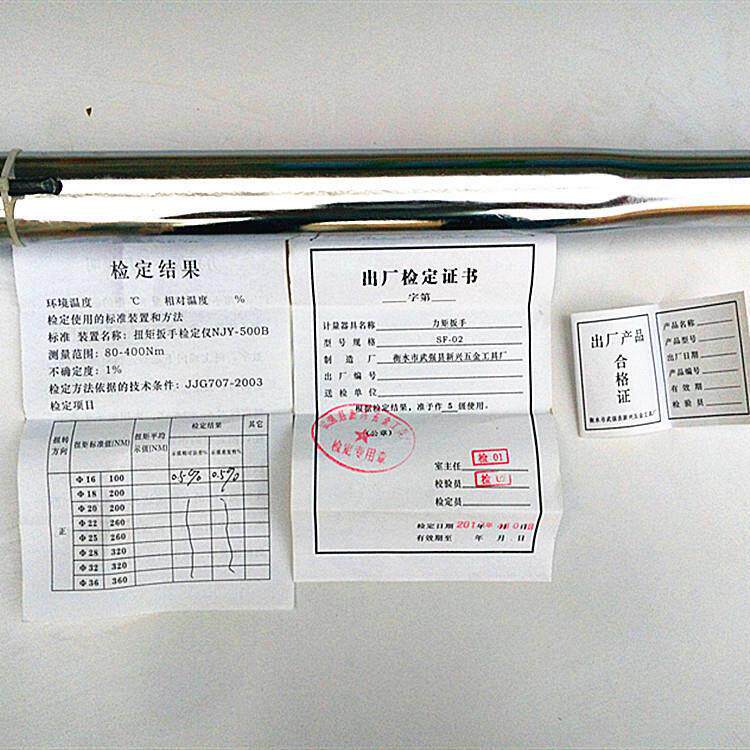 检定结果
环境温度 ℃ 相对温度 %
检定使用的标准装置和方法
标准 装置名称：扭矩扳手检定仪NJY-500B
测量范围：80-400Nm
不确定度：1%
检定方法依据的技术条件：JJG707-2003
检定项目
扭转方向 扭矩标准值(NM) 扭矩平均示值(NM) 检定结果 其它
正
Φ16 100 0.5% 0.5%
Φ18 200
Φ20 200
Φ22 260
Φ25 260
Φ28 320
Φ32 320
Φ36 360
出厂检定证书
字第
计量器具名称 力矩扳手
型号规格 SF-02
制造厂 衡水市武强县新兴五金工具厂
出厂编号
送检单位
根据检定结果，准予作 5 级使用。
(公章)
检定专用章
室主任 检 01
校验员 检
检定员
检定日期
有效期至 年 月 日
出厂产品
合格证
衡水市武强县新兴五金工具厂
产品名称
产品型号
出厂日期
产品编号
有效期
检验员